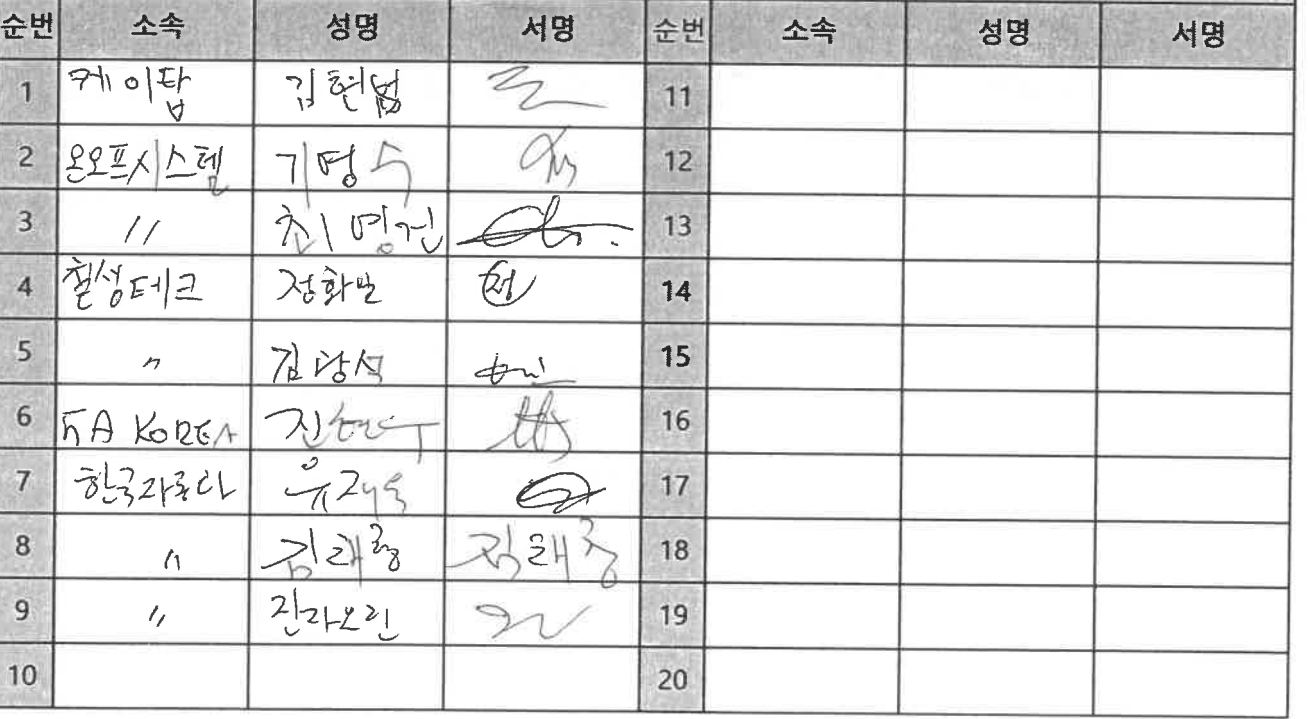 순번 소속 성명 서명 순번 소속 성명 서명
1 케이탑 김현범 11
2 온오프시스템 기명수 12
3 // 최명건 13
4 칠성테크 정화민 정 14
5 〃 김광석 15
6 KA KOREA 진현수 16
7 한국자루다 유재욱 17
8 〃 김태룡 김태룡 18
9 〃 진자오린 19
10 20